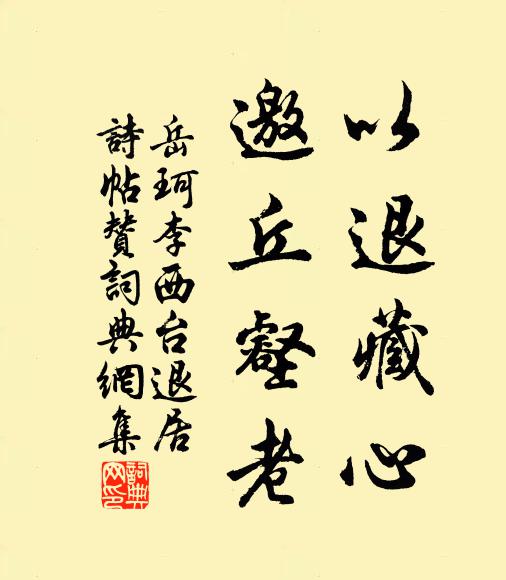 以退藏心
邀丘壑老
岳珂李西台退居
詩帖赞詞典網集
詞典网印